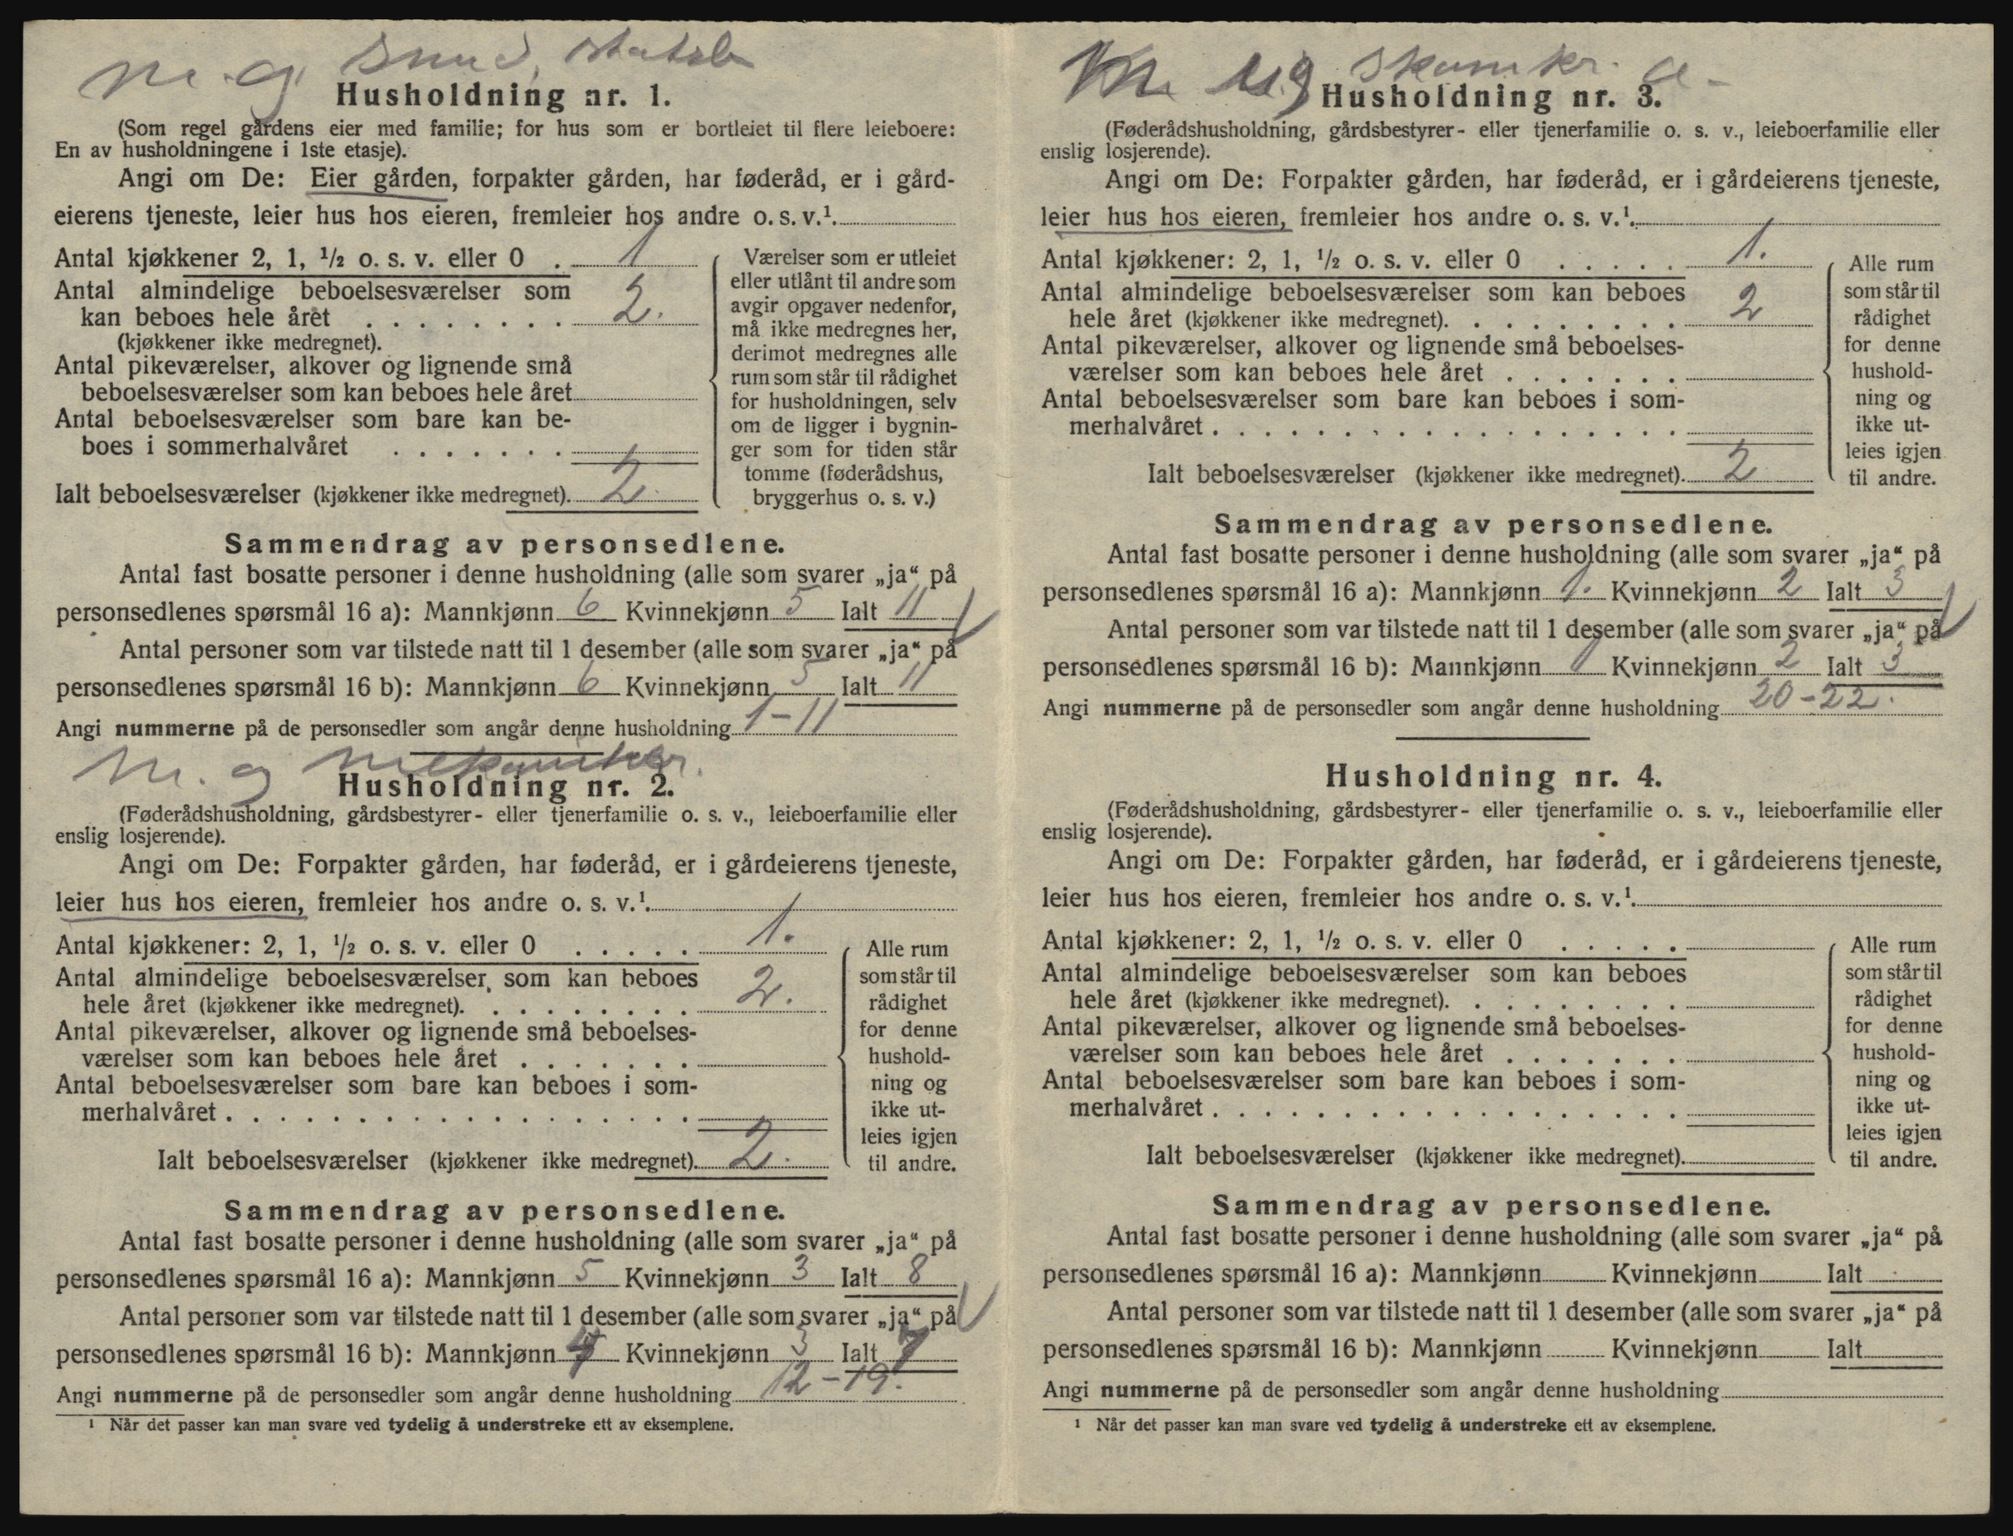 m. g. smed, statsb
Husholdning nr. 1.
(Som regel gårdens eier med familie; for hus som er bortleiet til flere leieboere:
En av husholdningene i 1ste etasje).
Angi om De: Eier gården, forpakter gården, har føderåd, er i gård-
eierens tjeneste, leier hus hos eieren, fremleier hos andre o. s. v.¹
Antal kjøkkener 2, 1, ½ o. s. v. eller 0 . 1
Antal almindelige beboelsesværelser som
kan beboes hele året . . . . . . . . 2.
(kjøkkener ikke medregnet).
Antal pikeværelser, alkover og lignende små
beboelsesværelser som kan beboes hele året
Antal beboelsesværelser som bare kan be-
boes i sommerhalvåret . . . . . . .
Ialt beboelsesværelser (kjøkkener ikke medregnet). 2.
Værelser som er utleiet
eller utlånt til andre som
avgir opgaver nedenfor,
må ikke medregnes her,
derimot medregnes alle
rum som står til rådighet
for husholdningen, selv
om de ligger i bygnin-
ger som for tiden står
tomme (føderådshus,
bryggerhus o. s. v.)
Sammendrag av personsedlene.
Antal fast bosatte personer i denne husholdning (alle som svarer „ja“ på
personsedlenes spørsmål 16 a): Mannkjønn 6 Kvinnekjønn 5 Ialt 11
Antal personer som var tilstede natt til 1 desember (alle som svarer „ja“ på
personsedlenes spørsmål 16 b): Mannkjønn 6 Kvinnekjønn 5 Ialt 11
Angi nummerne på de personsedler som angår denne husholdning 1-11
m. g mekaniker.
Husholdning nr. 2.
(Føderådshusholdning, gårdsbestyrer- eller tjenerfamilie o. s. v., leieboerfamilie eller
enslig losjerende).
Angi om De: Forpakter gården, har føderåd, er i gårdeierens tjeneste,
leier hus hos eieren, fremleier hos andre o. s. v.¹.
Antal kjøkkener: 2, 1, ½ o. s. v. eller 0 . . . . . 1.
Antal almindelige beboelsesværelser som kan beboes
hele året (kjøkkener ikke medregnet). . . . . . . . . 2.
Antal pikeværelser, alkover og lignende små beboelses-
værelser som kan beboes hele året . . . . . . .
Antal beboelsesværelser som bare kan beboes i som-
merhalvåret . . . . . . . . . . . . . . . . . .
Ialt beboelsesværelser (kjøkkener ikke medregnet). 2.
Alle rum
som står til
rådighet
for denne
hushold-
ning og
ikke ut-
leies igjen
til andre.
Sammendrag av personsedlene.
Antal fast bosatte personer i denne husholdning (alle som svarer „ja“ på
personsedlenes spørsmål 16 a): Mannkjønn 5 Kvinnekjønn 3 Ialt 8
Antal personer som var tilstede natt til 1 desember (alle som svarer „ja“ på
personsedlenes spørsmål 16 b): Mannkjønn 4 Kvinnekjønn 3 Ialt 7
Angi nummerne på de personsedler som angår denne husholdning 12-19.
¹ Når det passer kan man svare ved tydelig å understreke ett av eksemplene.
Husholdning nr. 3.
(Føderådshusholdning, gårdsbestyrer- eller tjenerfamilie o. s. v., leieboerfamilie eller
enslig losjerende).
Angi om De: Forpakter gården, har føderåd, er i gårdeierens tjeneste,
leier hus hos eieren, fremleier hos andre o. s. v.¹.
Antal kjøkkener: 2, 1, ½ o. s. v. eller 0 . . . . . 1.
Antal almindelige beboelsesværelser som kan beboes
hele året (kjøkkener ikke medregnet). . . . . . . . . 2
Antal pikeværelser, alkover og lignende små beboelses-
værelser som kan beboes hele året . . . . . . .
Antal beboelsesværelser som bare kan beboes i som-
merhalvåret . . . . . . . . . . . . . . . . . .
Ialt beboelsesværelser (kjøkkener ikke medregnet). 2
Alle rum
som står til
rådighet
for denne
hushold-
ning og
ikke ut-
leies igjen
til andre.
Sammendrag av personsedlene.
Antal fast bosatte personer i denne husholdning (alle som svarer „ja“ på
personsedlenes spørsmål 16 a): Mannkjønn 1. Kvinnekjønn 2 Ialt 3
Antal personer som var tilstede natt til 1 desember (alle som svarer „ja“ på
personsedlenes spørsmål 16 b): Mannkjønn 1 Kvinnekjønn 2 Ialt 3
Angi nummerne på de personsedler som angår denne husholdning 20-22.
Husholdning nr. 4.
(Føderådshusholdning, gårdsbestyrer- eller tjenerfamilie o. s. v., leieboerfamilie eller
enslig losjerende).
Angi om De: Forpakter gården, har føderåd, er i gårdeierens tjeneste,
leier hus hos eieren, fremleier hos andre o. s. v.¹.
Antal kjøkkener: 2, 1, ½ o. s. v. eller 0 . . . . .
Antal almindelige beboelsesværelser som kan beboes
hele året (kjøkkener ikke medregnet). . . . . . . . .
Antal pikeværelser, alkover og lignende små beboelses-
værelser som kan beboes hele året . . . . . . .
Antal beboelsesværelser som bare kan beboes i som-
merhalvåret . . . . . . . . . . . . . . . . . .
Ialt beboelsesværelser (kjøkkener ikke medregnet).
Alle rum
som står til
rådighet
for denne
hushold-
ning og
ikke ut-
leies igjen
til andre.
Sammendrag av personsedlene.
Antal fast bosatte personer i denne husholdning (alle som svarer „ja“ på
personsedlenes spørsmål 16 a): Mannkjønn Kvinnekjønn Ialt
Antal personer som var tilstede natt til 1 desember (alle som svarer „ja“ på
personsedlenes spørsmål 16 b): Mannkjønn Kvinnekjønn Ialt
Angi nummerne på de personsedler som angår denne husholdning
¹ Når det passer kan man svare ved tydelig å understreke ett av eksemplene.